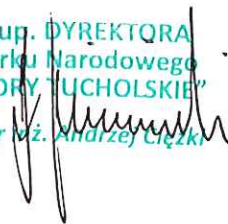 up. DYREKTORA
rku Narodowego
ORY TUCHOLSKIE"
r inż. Andrzej Ciężki